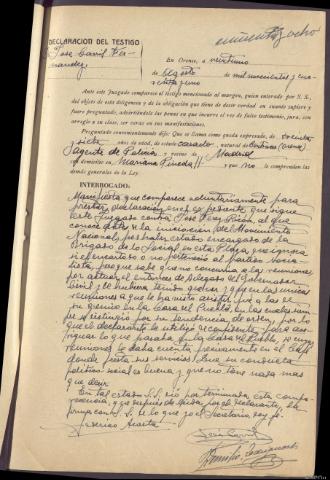 cincuenta y ocho
DECLARACION DEL TESTIGO
José Caviel Fer-
nandez
En Orense, a veintiuno
de Agosto de mil novecientos y cua-
renta y uno
Ante este Juzgado compareció el testigo mencionado al margen, quien enterado por S. S.
del objeto de esta diligencia y de la obligación que tiene de decir verdad en cuanto supiere y
fuere preguntado, advirtiéndole las penas en que incurre el reo de falso testimonio, juró, con
arreglo a su clase, ser veraz en sus manifestaciones.
Preguntado convenientemente dijo: Que se llama como queda expresado, de
siete años de edad, de estado casado, natural de (Orense)
Agente de Policía y vecino de Madrid
con domicilio en Mariana Pineda 11 y que no le comprenden las
demás generales de la Ley.
INTERROGADO:
Manifiesta que comparece voluntariamente para
prestar declaración en el expediente que sigue
este Juzgado contra José Pérez al que
conoce de antes de la iniciación del Movimiento
Nacional, por haber estado encargado de la
Brigada de lo Social en esta Plaza, no
si el encartado o no pertenecía al partido Socia-
lista, pues que sabe que no concurría a las reuniones
por actuar el entonces de delegado del Gobernador
Civil y le hubiera tenido que ver y que en las únicas
reuniones a que le ha visto asistir fue a las de
su gremio en la Casa del Pueblo, en las cuales
su prestigio por su tendencia de orden, por lo
que el declarante le utilizó de confidente para ave-
riguar lo que pasaba en la Casa del Pueblo, en cuyas
reuniones le daba cuenta permanentemente al Cafe
donde presta sus servicios. Que su conducta
político social es buena y que no tiene nada mas
que decir.
En tal estado S. S. dió por terminada esta compa-
recencia, y que después de leída por el declarante, la
firma con S. S. de lo que yo el Secretario doy fé.